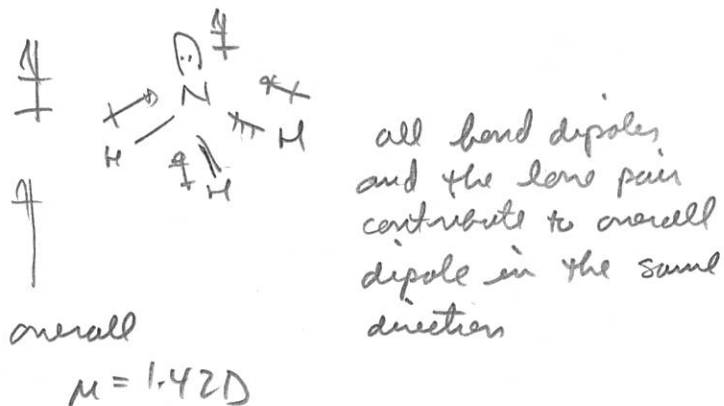 N
H
H
H
all bond dipoles
and the lone pair
contribute to overall
dipole in the same
direction
overall
μ = 1.42D